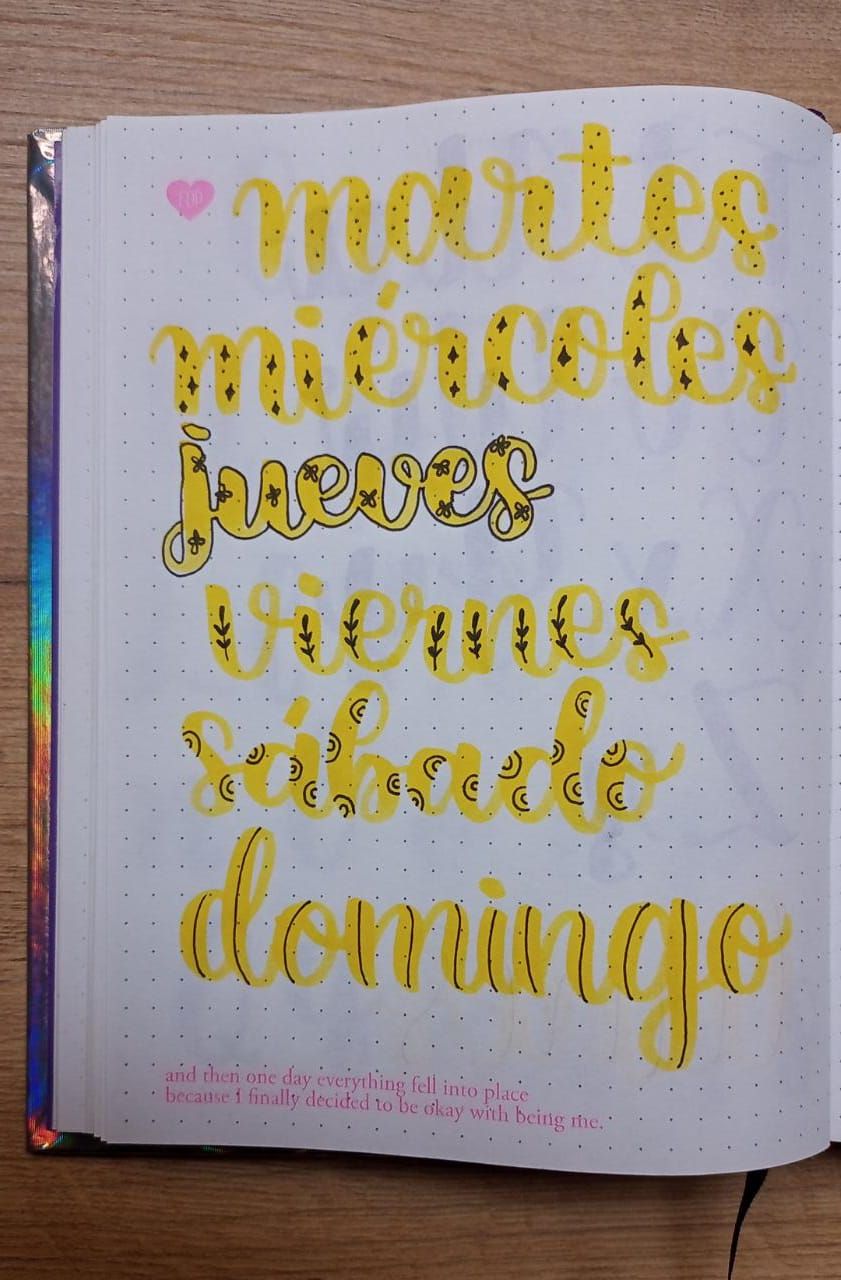 martes
miércoles
jueves
viernes
sábado
domingo
and then one day everything fell into place
because i finally decided to be okay with being me.